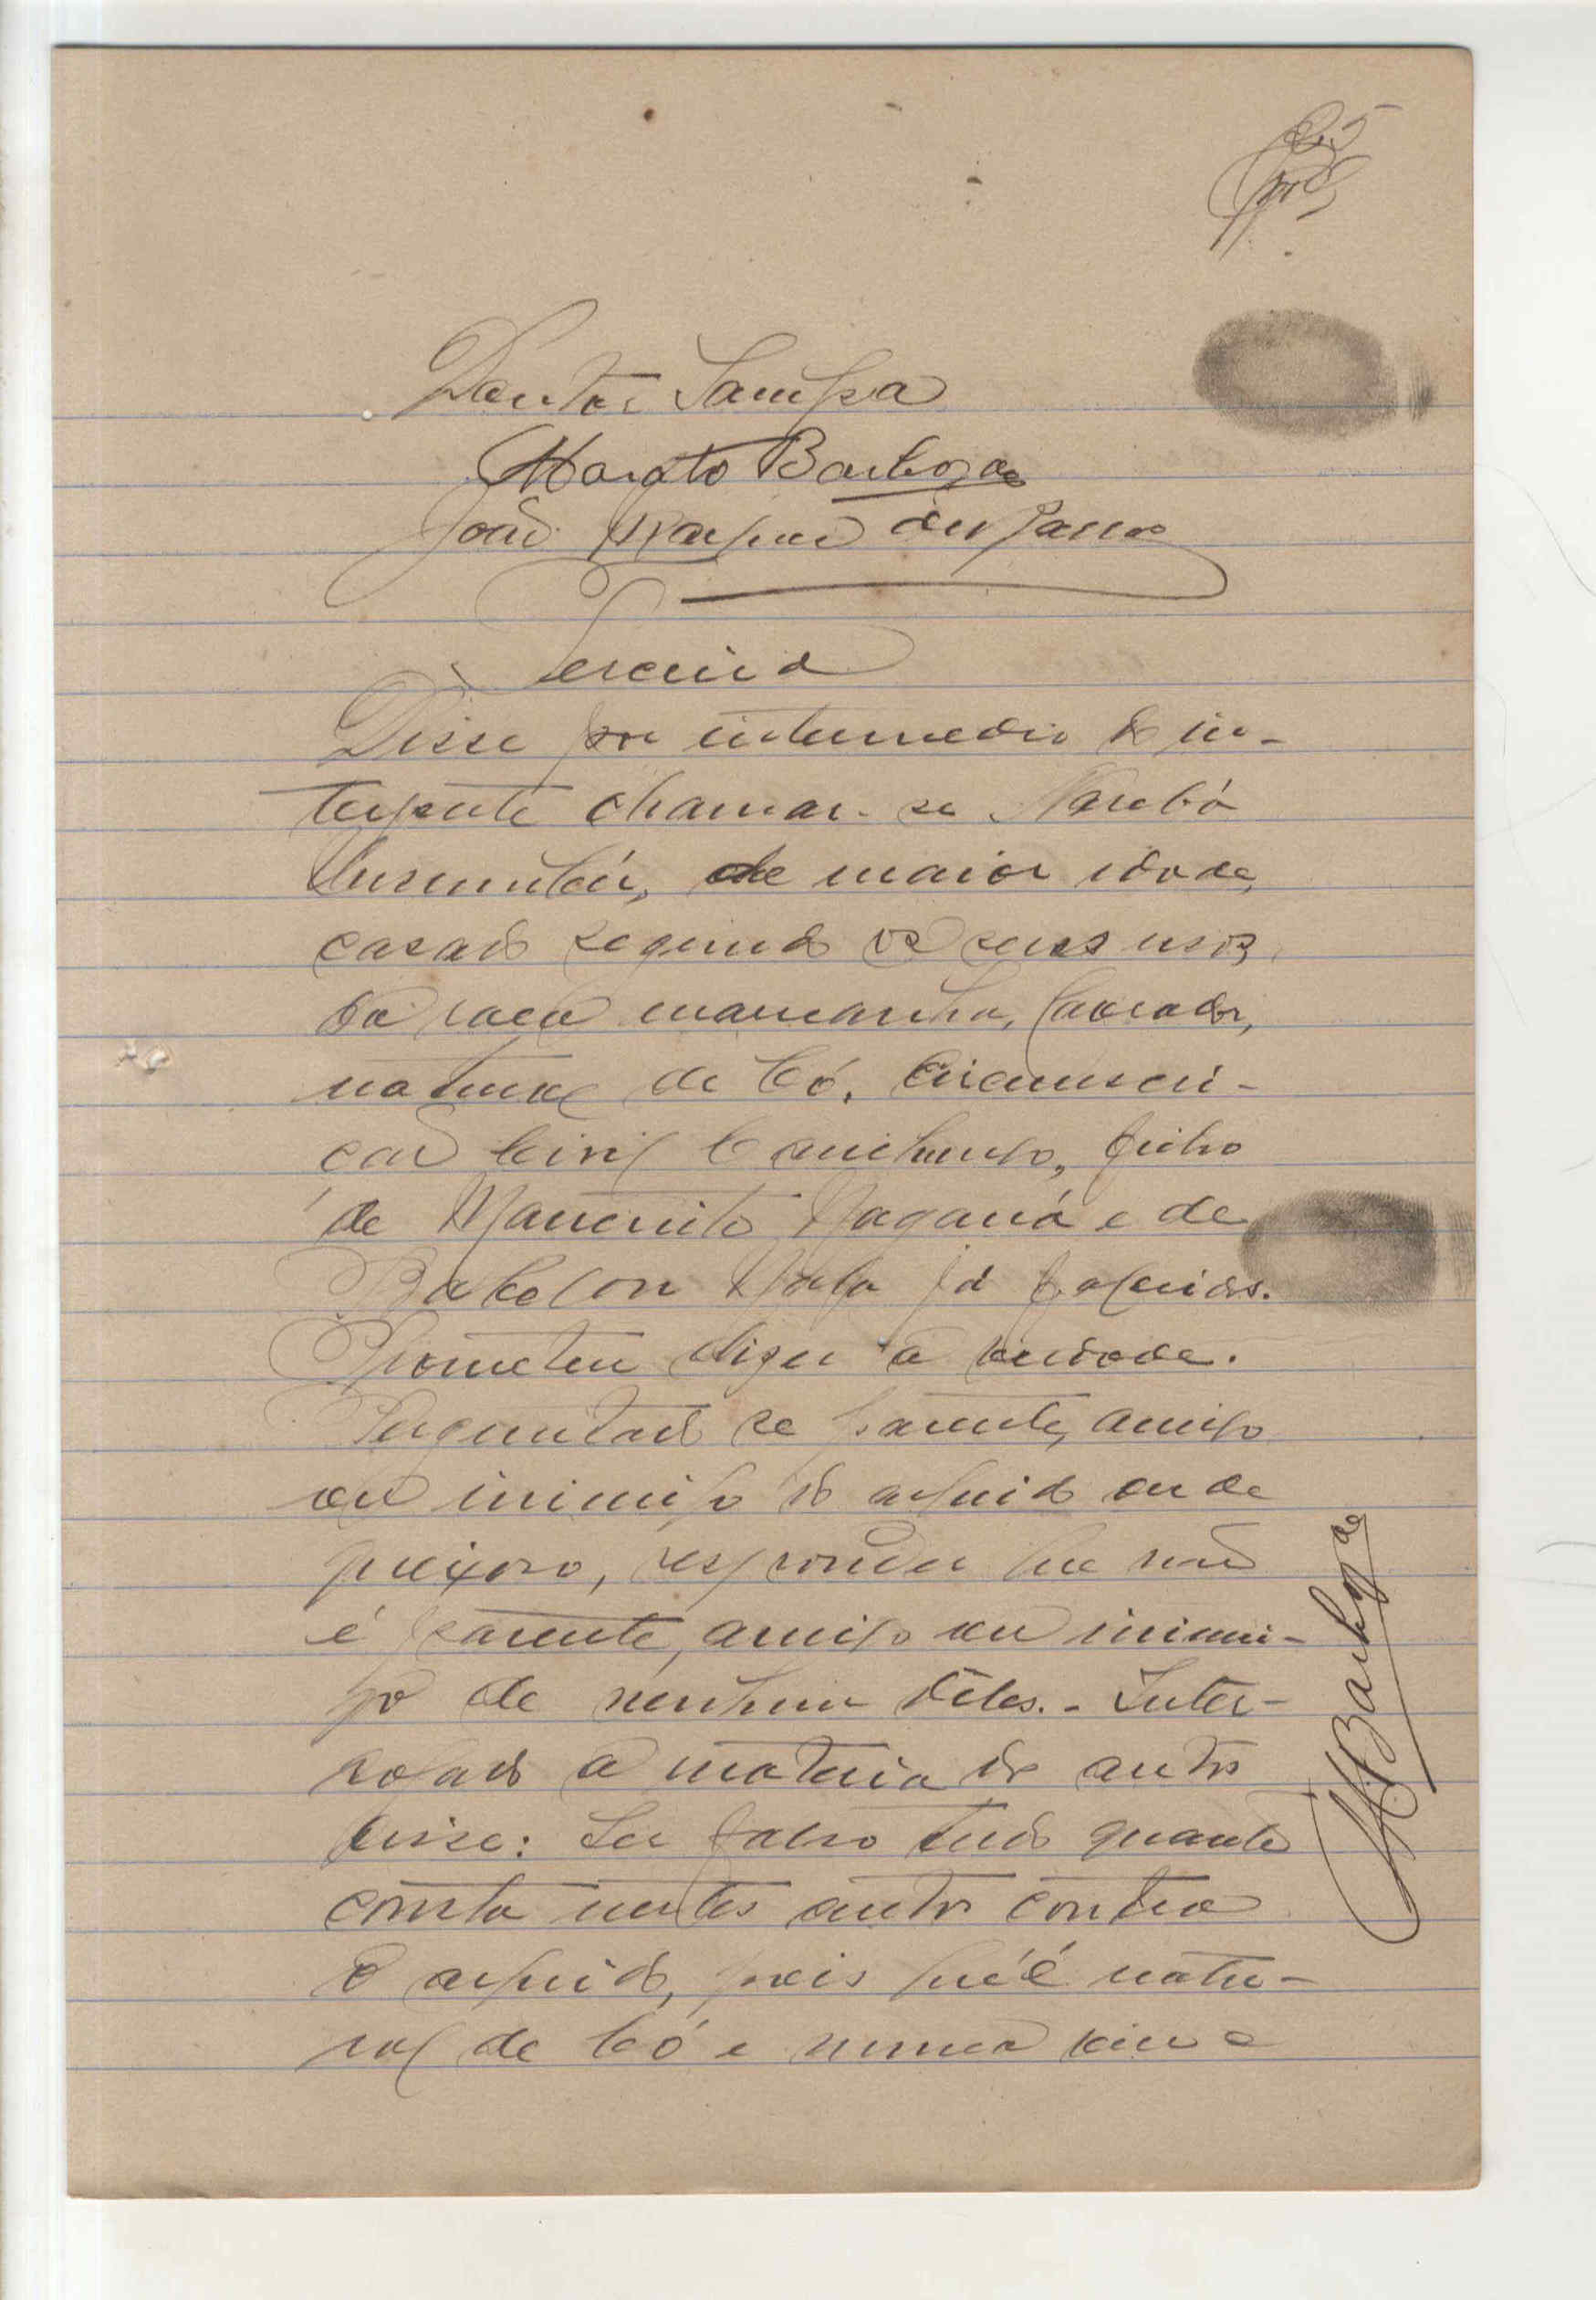 Santos Sampa
Morato Barboza
João dos Passos
Terceira
Disse por intermedio do in-
terprete chamar-se
de maior idade,
casado segundo os seus usos,
da raça mancanha, lavrador,
natural de Có, Circunscri-
ção Civil Canchungo, filho
de e de
já falecidos.
Prometeu dizer a verdade.
Perguntado se parente, amigo
ou inimigo do arguido ou de
queixoso, respondeu que não
é parente, amigo ou inimi-
go de nenhum dêles. - Inter-
rogado a materia do autos
disse: Ser falso tudo quanto
consta nestes autos contra
o arguido, pois que é natu-
ral de Có e nunca viu o
Barboza